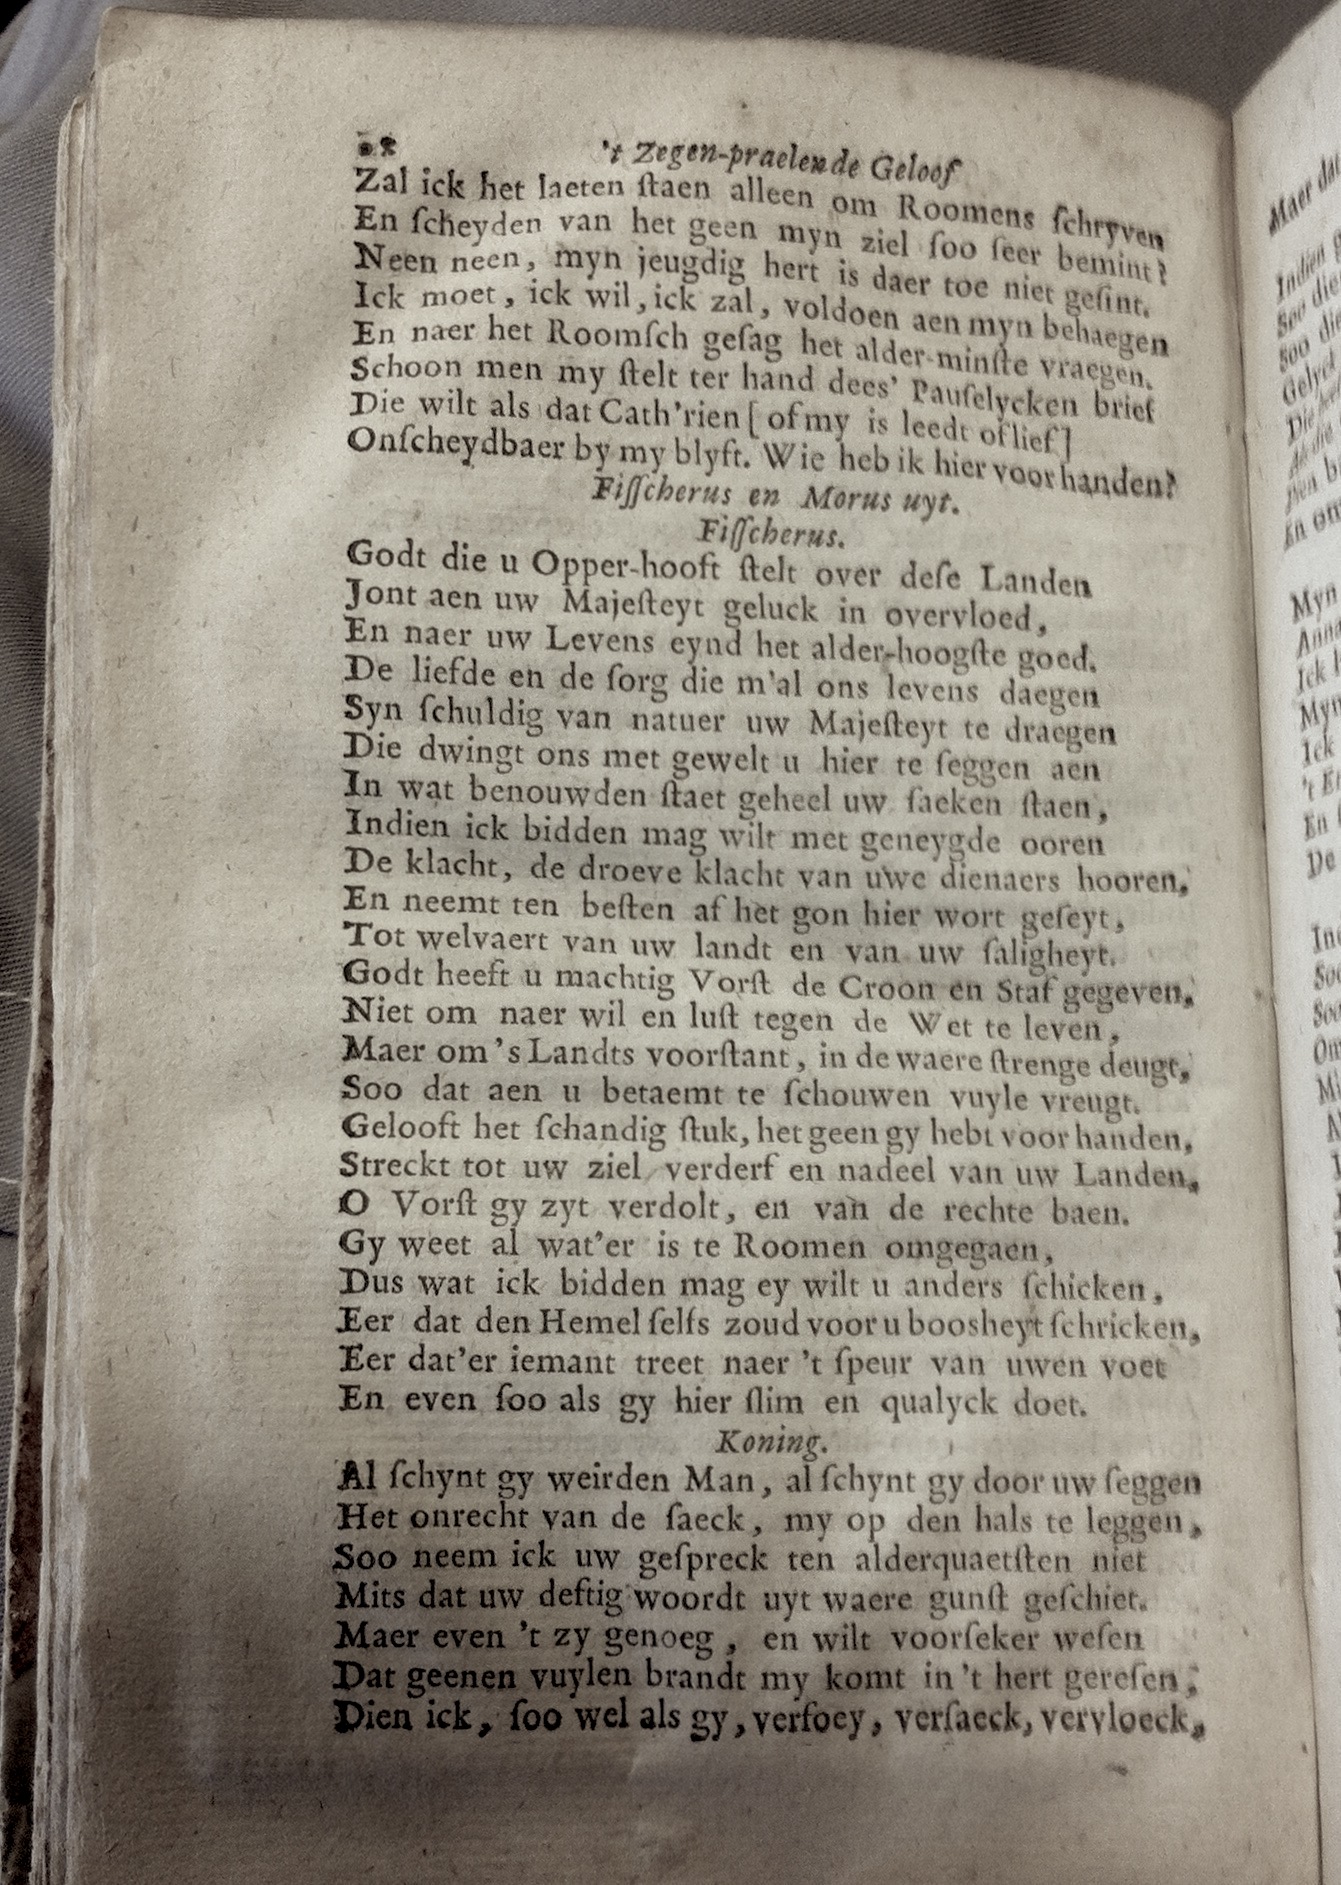 't Zegen-praelende Geloof
Zal ick het laeten ſtaen alleen om Roomens ſchryven
En ſcheyden van het geen myn ziel ſoo ſeer bemint?
Neen neen, myn jeugdig hert is daer toe niet geſint.
Ick moet, ick wil, ick zal, voldoen aen myn behaegen
En naer het Roomſch geſag het alder-minſte vraegen.
Schoon men my ſtelt ter hand dees' Pauſelycken brief
Die wilt als dat Cath'rien [ of my is leedt of lief ]
Onſcheydbaer by my blyft. Wie heb ik hier voor handen?
Fiſſcherus en Morus uyt.
Fiſſcherus.
Godt die u Opper-hooft ſtelt over deſe Landen
Jont aen uw Majeſteyt geluck in overvloed,
En naer uw Levens eynd het alder-hoogſte goed.
De liefde en de ſorg die m'al ons levens daegen
Syn ſchuldig van natuer uw Majeſteyt te draegen
Die dwingt ons met gewelt u hier te ſeggen aen
In wat benouwden ſtaet geheel uw ſaeken ſtaen,
Indien ick bidden mag wilt met geneygde ooren
De klacht, de droeve klacht van uwe dienaers hooren,
En neemt ten beſten af het gon hier wort geſeyt,
Tot welvaert van uw landt en van uw ſaligheyt.
Godt heeft u machtig Vorſt de Croon en Staf gegeven,
Niet om naer wil en luſt tegen de Wet te leven,
Maer om 's Landts voorſtant, in de waere ſtrenge deugt,
Soo dat aen u betaemt te ſchouwen vuyle vreugt.
Gelooft het ſchandig ſtuk, het geen gy hebt voor handen,
Streckt tot uw ziel verderf en nadeel van uw Landen,
O Vorſt gy zyt verdolt, en van de rechte baen.
Gy weet al wat'er is te Roomen omgegaen,
Dus wat ick bidden mag ey wilt u anders ſchicken,
Eer dat den Hemel ſelfs zoud voor u boosheyt ſchricken,
Eer dat'er iemant treet naer 't ſpeur van uwen voet
En even ſoo als gy hier ſlim en qualyck doet.
Koning.
Al ſchynt gy weirden Man, al ſchynt gy door uw ſeggen
Het onrecht van de ſaeck, my op den hals te leggen,
Soo neem ick uw geſpreck ten alderquaetſten niet
Mits dat uw deftig woordt uyt waere gunſt geſchiet.
Maer even 't zy genoeg, en wilt voorſeker weſen
Dat geenen vuylen brandt my komt in 't hert gereſen,
Dien ick, ſoo wel als gy, verfoey, verſaeck, vervloeck,